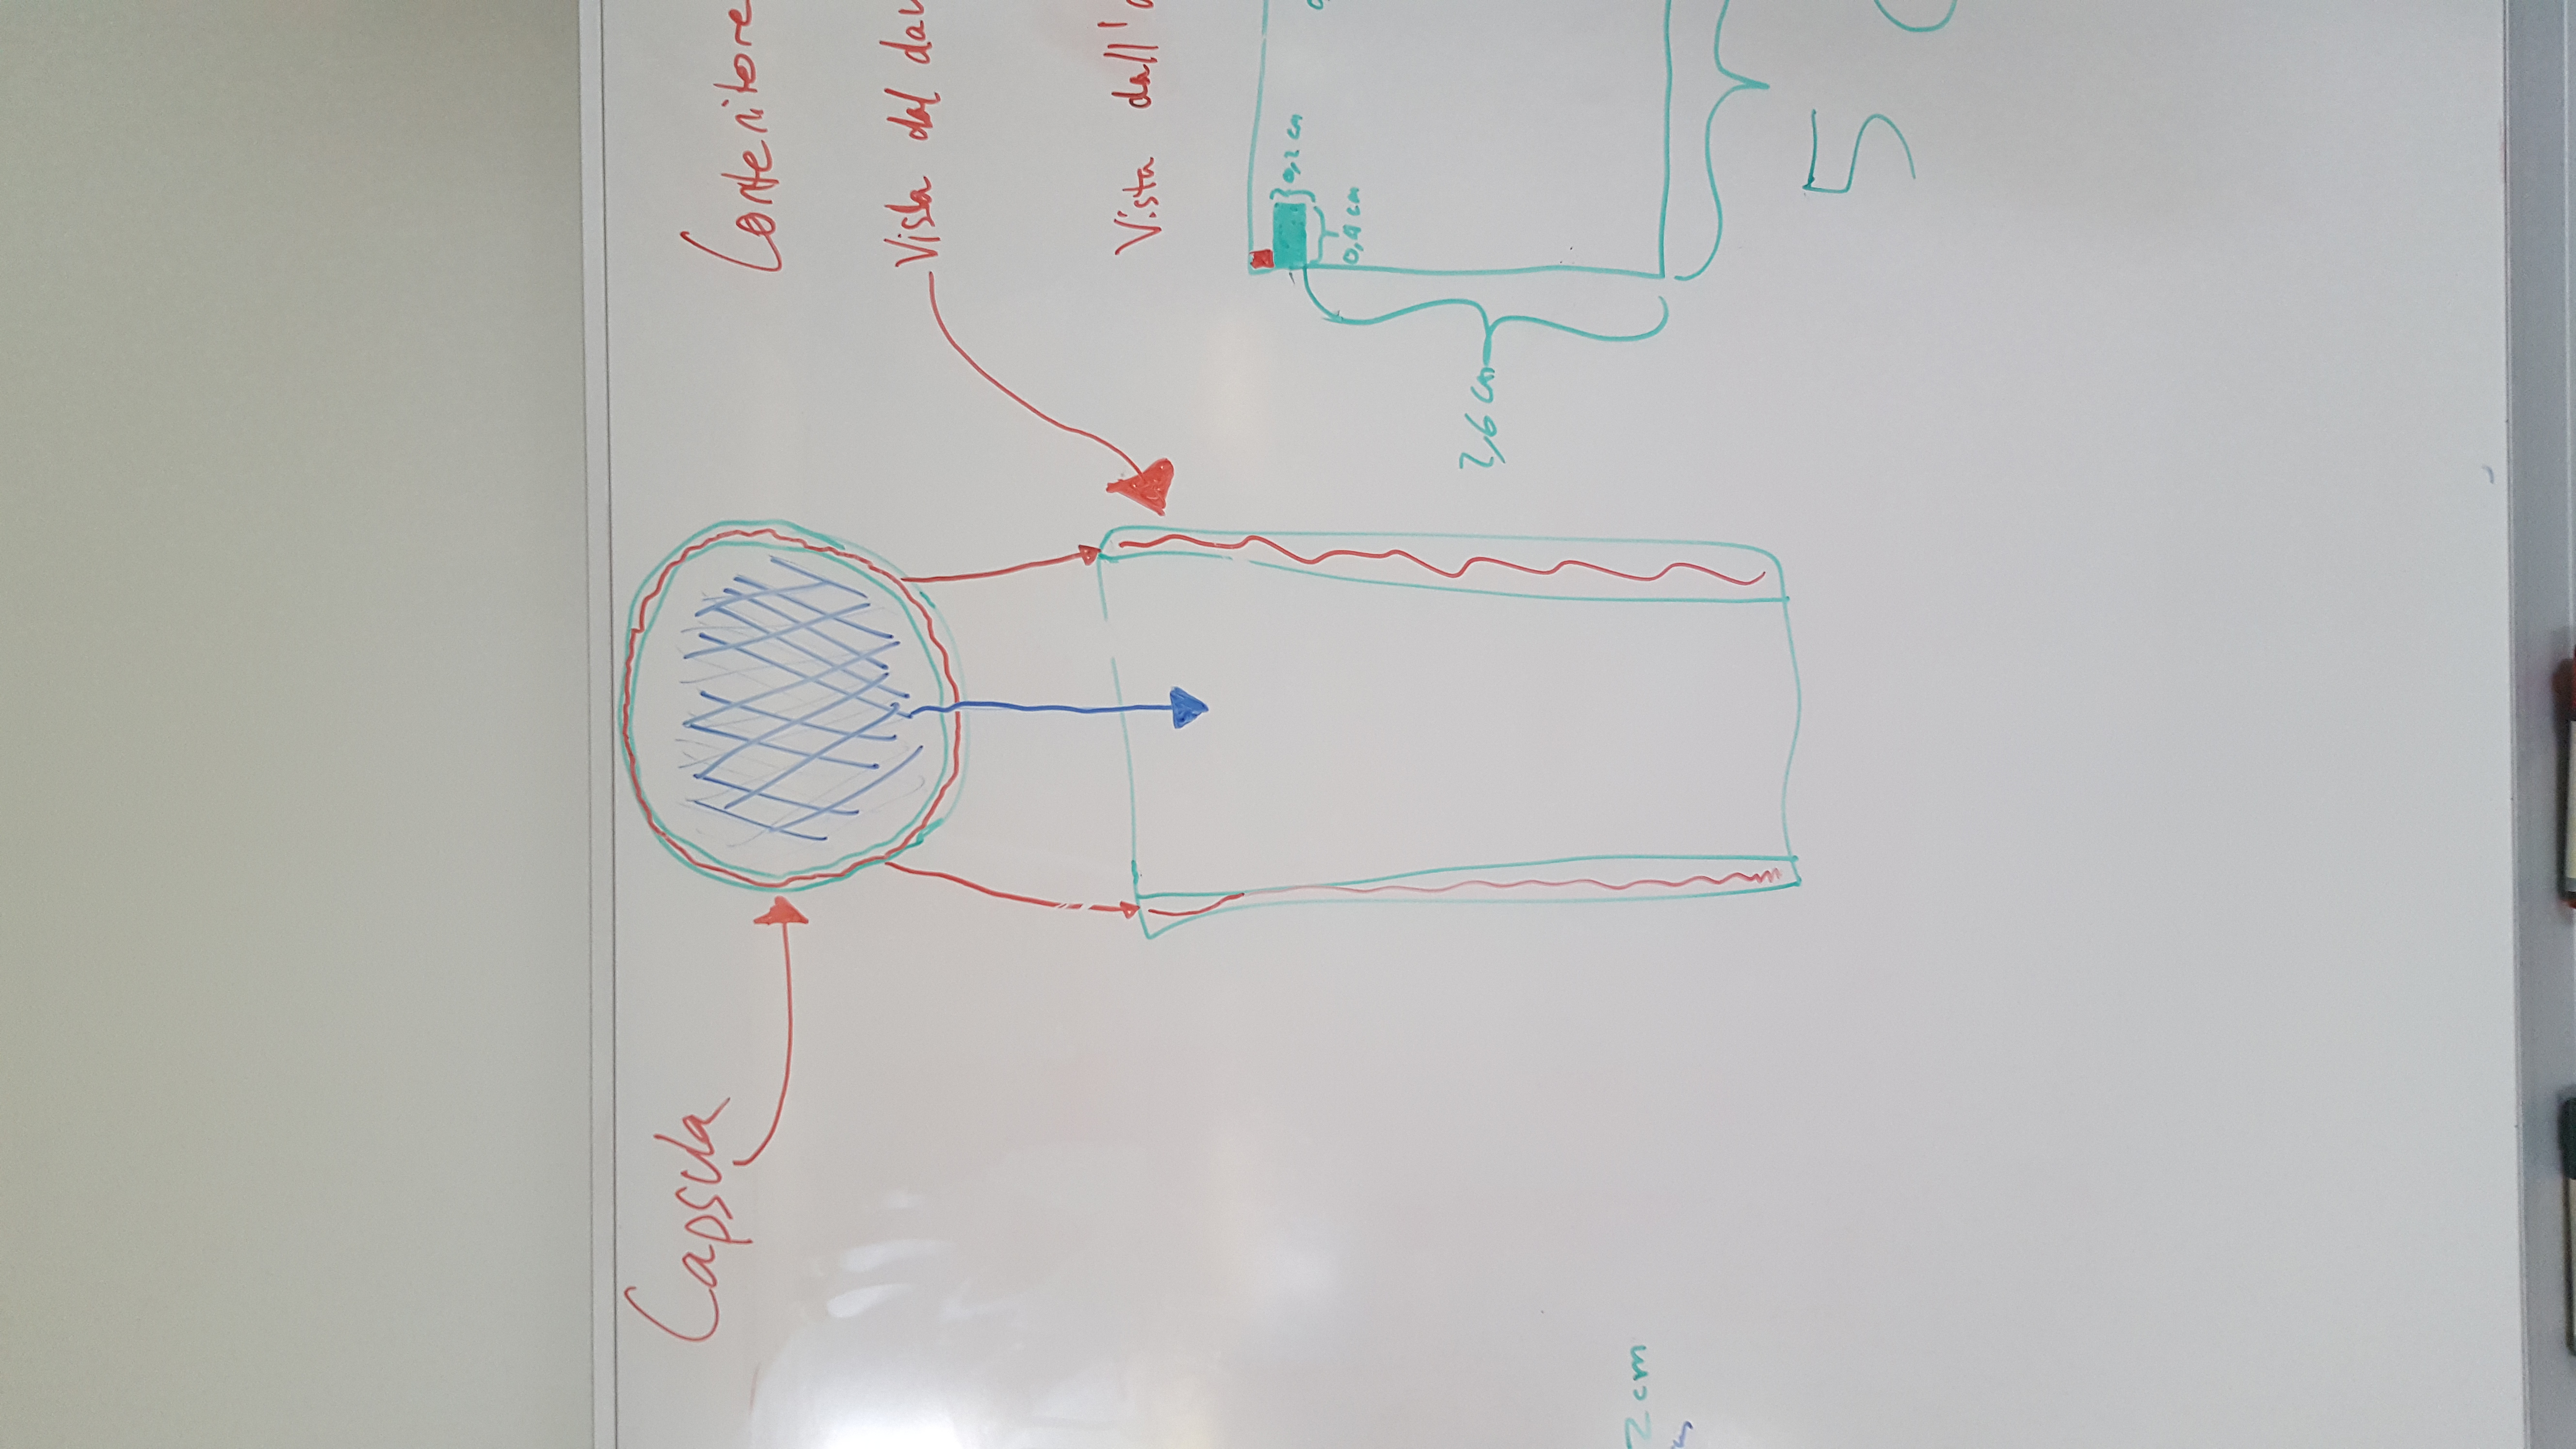 Capsula
Contenitore
Vista dal dav
Vista dall'a
0,2 cm
0,4 cm
2,6 cm
2 cm
5 c